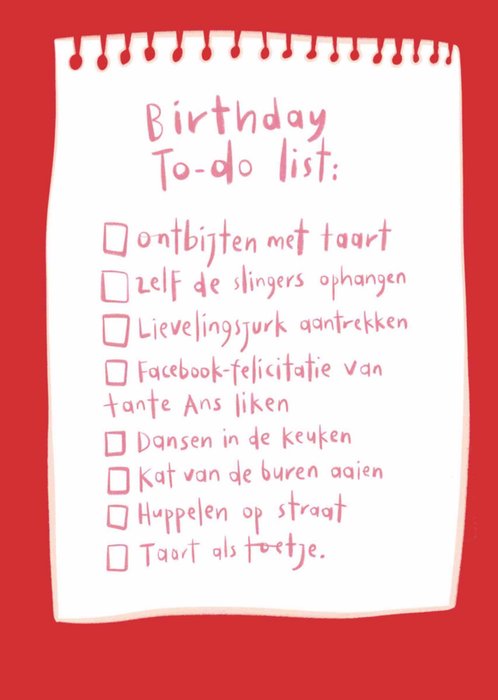 Birthday
To-do list:
ontbijten met taart
zelf de slingers ophangen
Lievelingsjurk aantrekken
Facebook-felicitatie van
tante Ans liken
Dansen in de keuken
Kat van de buren aaien
Huppelen op straat
Taart als toetje.